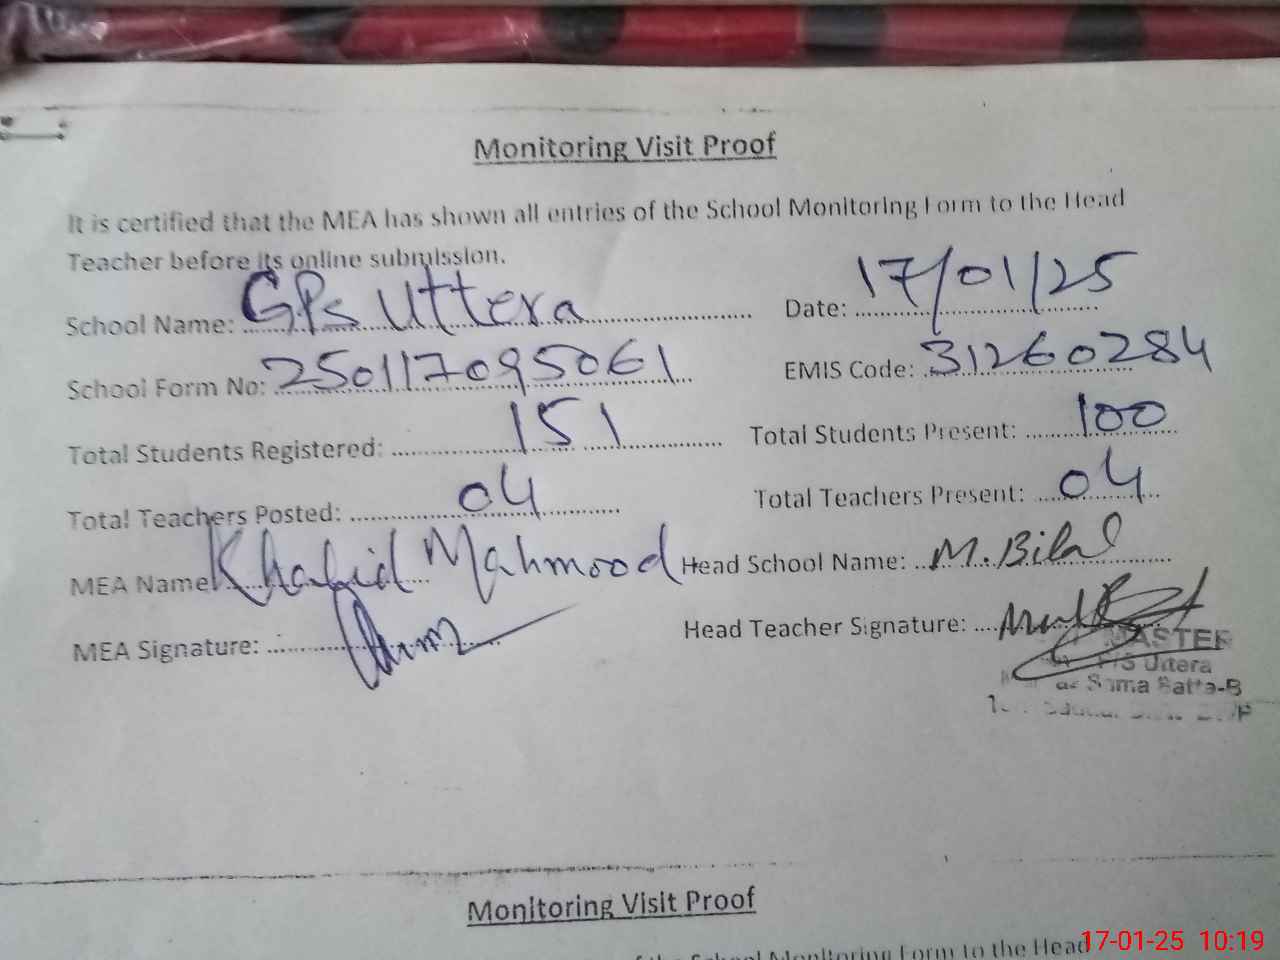 Monitoring Visit Proof
It is certified that the MEA has shown all entries of the School Monitoring Form to the Head
Teacher before its online submission.
School Name: GPS Uttera Date: 17/01/25
School Form No: 250117095061 EMIS Code: 31260284
Total Students Registered: 151 Total Students Present: 100
Total Teachers Posted: 04 Total Teachers Present: 04
MEA Name Khalid Mahmood Head School Name: M. Bilal
MEA Signature: Head Teacher Signature:
MASTER
Uttera
Satta-B
Monitoring Visit Proof
of the School Monitoring Form to the Head
17-01-25 10:19